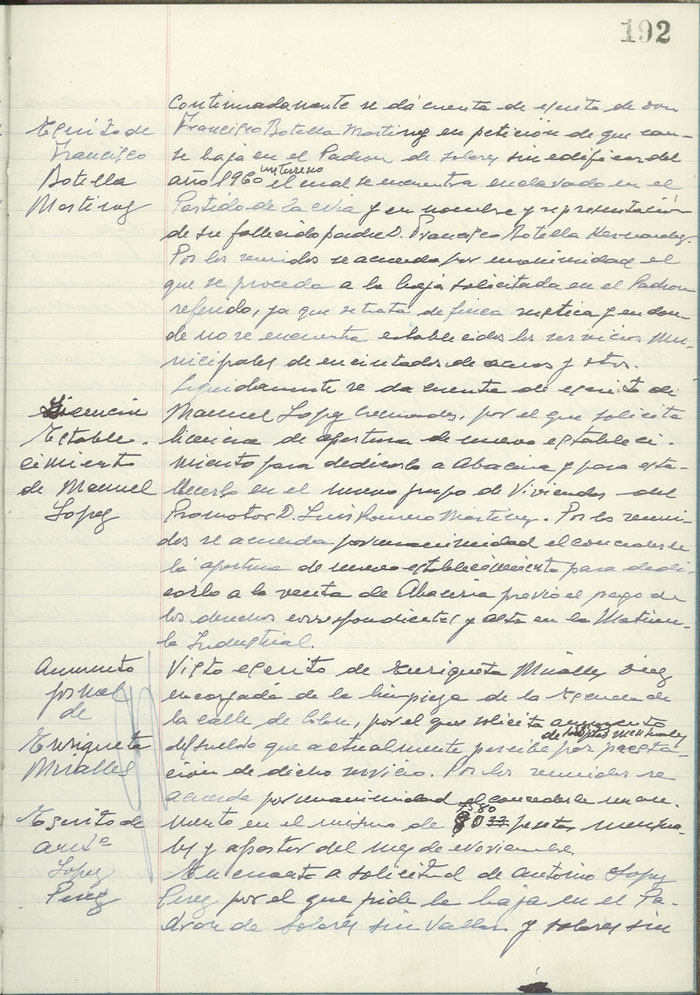 192
Continuadamente se dá cuenta de escrito de don
Escrito de Francisco Botella Martinez
Francisco Botella Martinez en petición de que cau-
se baja en el Padron de solares sin edificar del
año 1960 un terreno el cual se encuentra enclavado en el
Partido de la y en nombre y representación
de su fallecido padre D. Francisco Botella Hernandez.
Por los reunidos se acuerda por unanimidad el
que se proceda a la baja solicitada en el Padron
referido, ya que se trata de finca rustica y en don-
de no se encuentra establecidos los servicios mu-
nicipales de encintados de aceras y otros.
Seguidamente se da cuenta de escrito de
Licencia Estable-cimiento de Manuel Lopez
Manuel Lopez por el que solicita
licencia de apertura de nuevo estableci-
miento para dedicarlo a Abaceria y para esta-
blecerlo en el nuevo grupo de Viviendas del
Promotor D. Luis Romero Martinez. Por los reuni-
dos se acuerda por unanimidad el concederle
la apertura de nuevo establecimiento para dedi-
carlo a la venta de Abaceria previo el pago de
los derechos correspondientes y alta en la Matricu-
la Industrial.
Aumento jornal de Enriqueta Miralles
Visto escrito de Enriqueta Miralles Diez
encargada de la limpieza de la Escuela de
la calle de Colon, por el que solicita aumento
de ptas mensuales
del sueldo que actualmente percibe por presta-
ción de dicho servicio. Por los reunidos se
acuerda por unanimidad el concederle un au-
mento en el mismo de pesetas mensua-
les y a partir del mes de Noviembre.
Escrito de Antº Lopez Perez
En cuanto a solicitud de Antonio Lopez
Perez por el que pide la baja en el Pa-
dron de Solares sin Vallar y solares sin